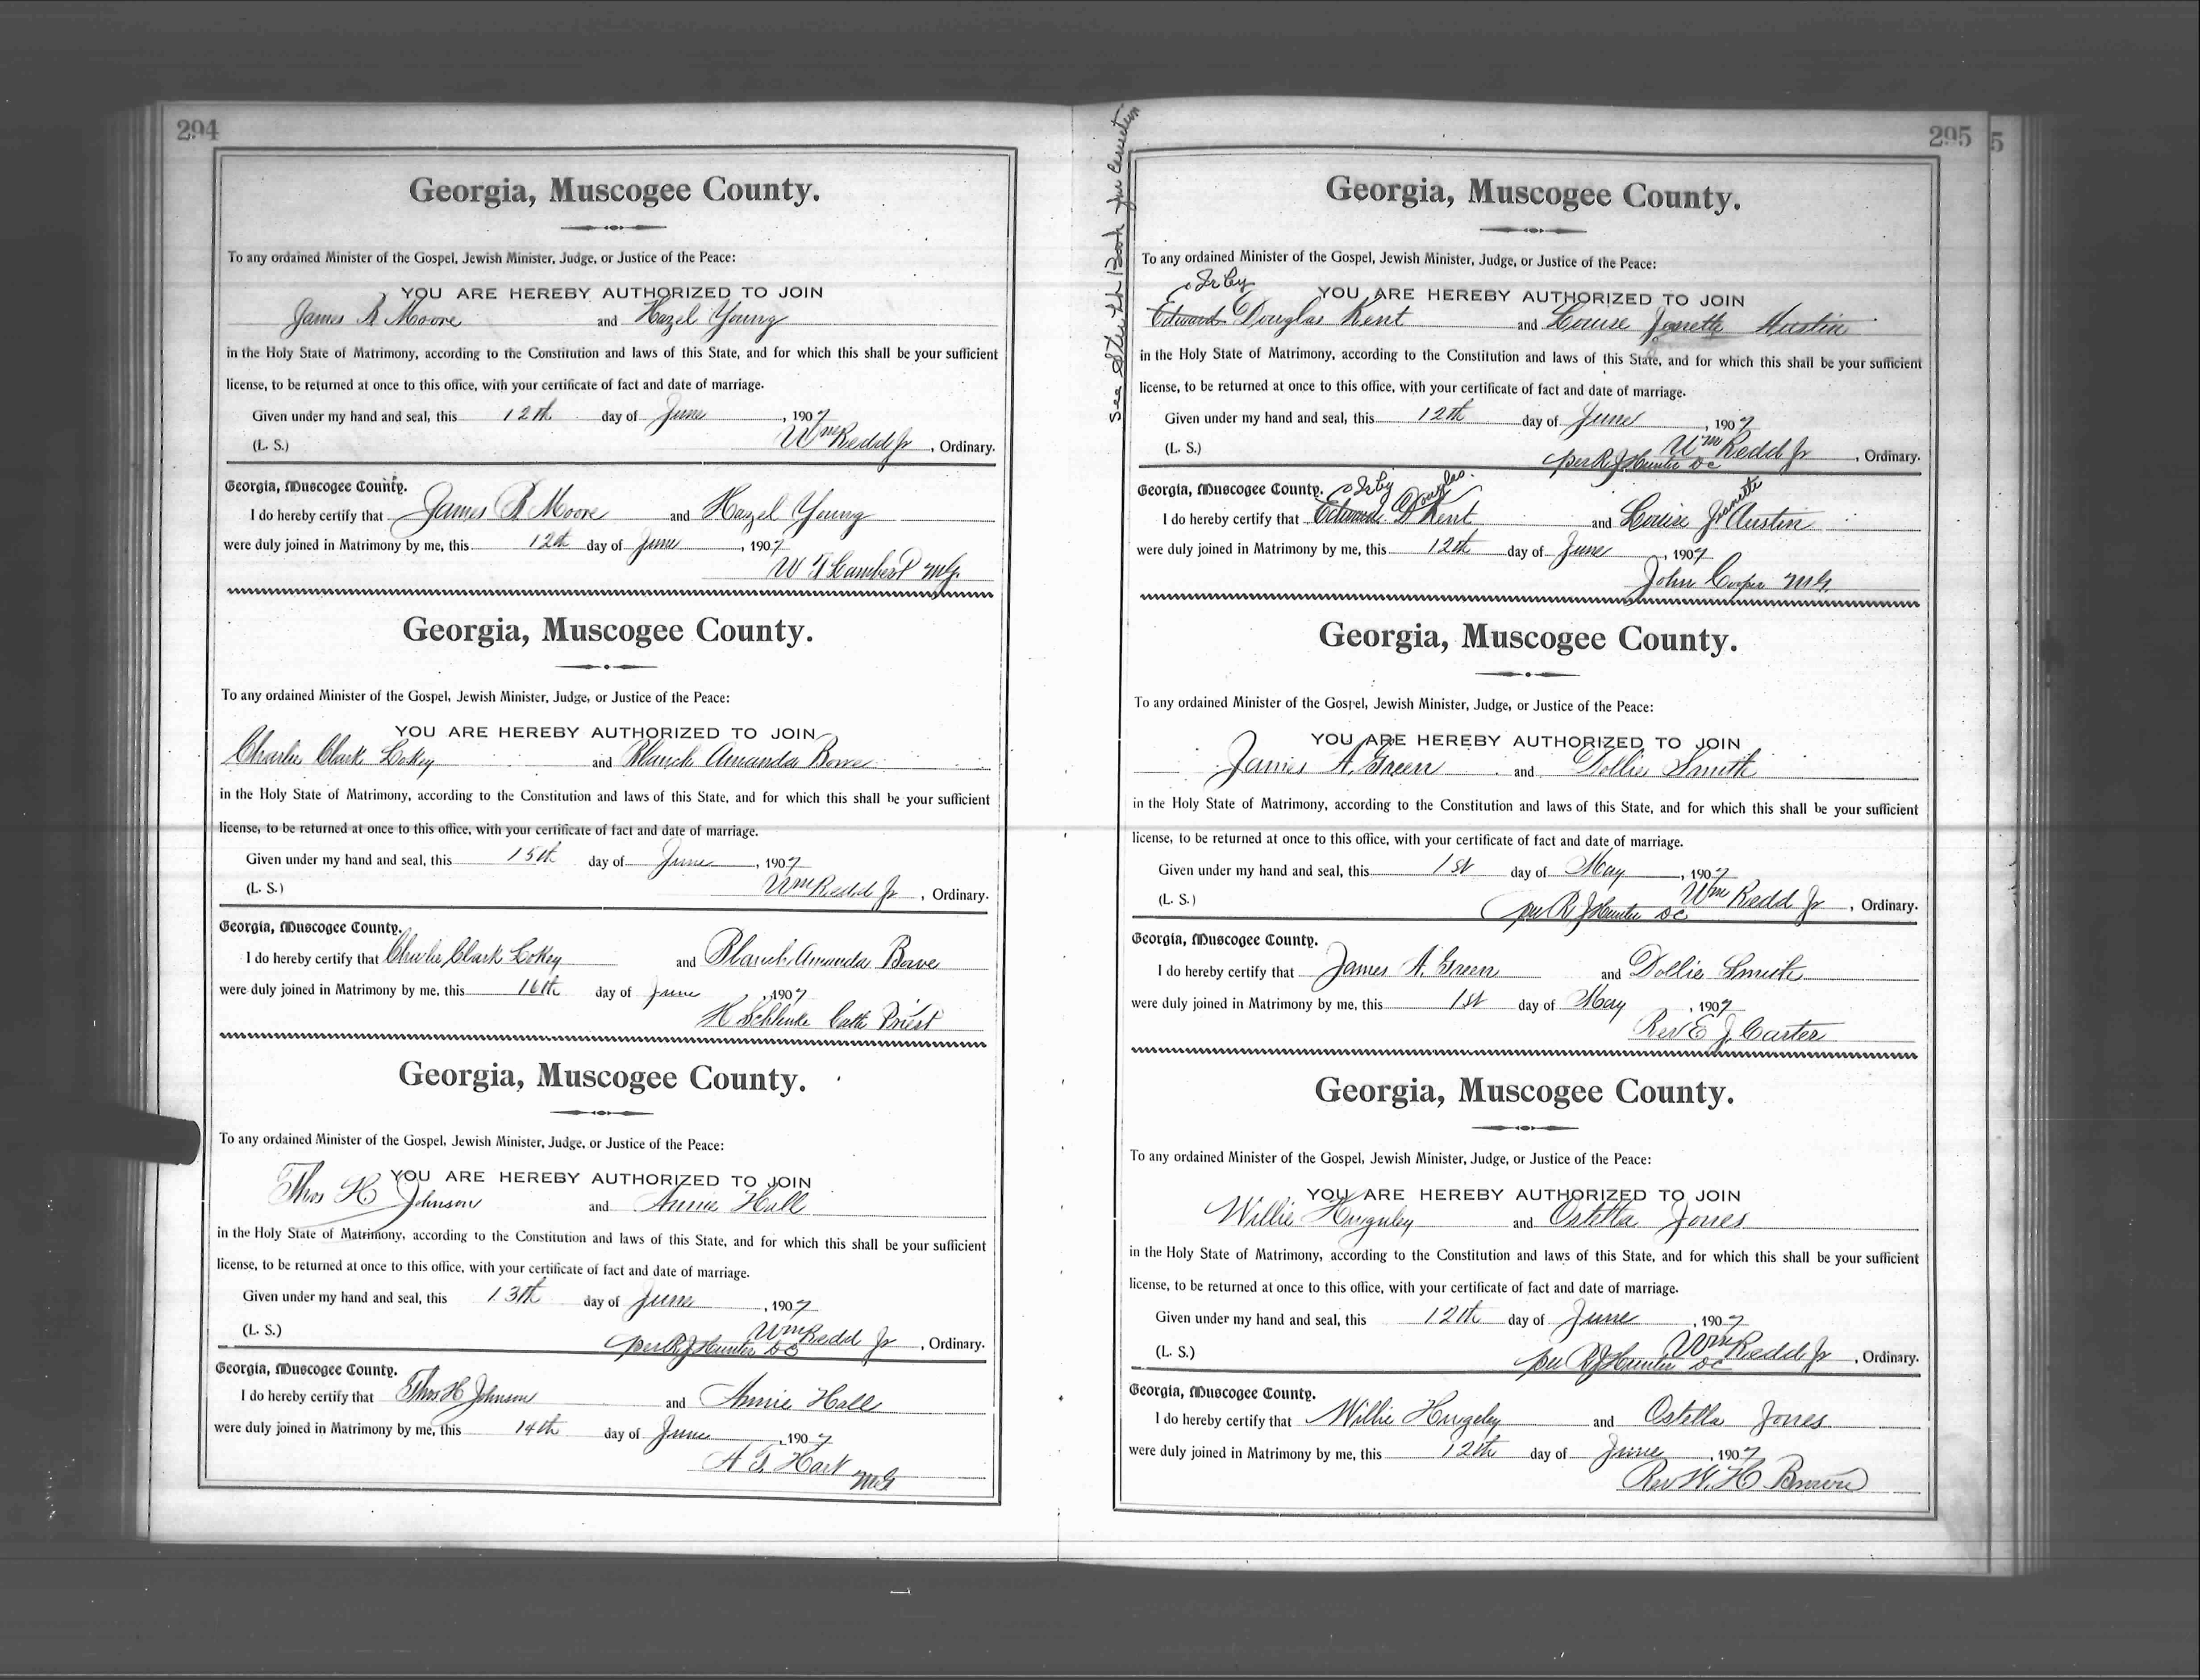 294
Georgia, Muscogee County.
To any ordained Minister of the Gospel, Jewish Minister, Judge, or Justice of the Peace:
YOU ARE HEREBY AUTHORIZED TO JOIN
James R Moore and Hazel Young
in the Holy State of Matrimony, according to the Constitution and laws of this State, and for which this shall be your sufficient
license, to be returned at once to this office, with your certificate of fact and date of marriage.
Given under my hand and seal, this 12th day of June, 1907
(L. S.) Wm Redd Jr, Ordinary.
Georgia, Muscogee County.
I do hereby certify that James R Moore and Hazel Young
were duly joined in Matrimony by me, this 12th day of June, 1907
Lambert M.G.
Georgia, Muscogee County.
To any ordained Minister of the Gospel, Jewish Minister, Judge, or Justice of the Peace:
YOU ARE HEREBY AUTHORIZED TO JOIN
Charlie Clark Lokey and Blanch Amanda Bowe
in the Holy State of Matrimony, according to the Constitution and laws of this State, and for which this shall be your sufficient
license, to be returned at once to this office, with your certificate of fact and date of marriage.
Given under my hand and seal, this 15th day of June, 1907
(L. S.) Wm Redd Jr, Ordinary.
Georgia, Muscogee County.
I do hereby certify that Charlie Clark Lokey and Blanch Amanda Bowe
were duly joined in Matrimony by me, this 16th day of June, 1907
H Schlenke Cath Priest
Georgia, Muscogee County.
To any ordained Minister of the Gospel, Jewish Minister, Judge, or Justice of the Peace:
YOU ARE HEREBY AUTHORIZED TO JOIN
Thos H Johnson and Annie Hall
in the Holy State of Matrimony, according to the Constitution and laws of this State, and for which this shall be your sufficient
license, to be returned at once to this office, with your certificate of fact and date of marriage.
Given under my hand and seal, this 13th day of June, 1907
(L. S.) Wm Redd Jr, Ordinary.
per R J Hunter DC
Georgia, Muscogee County.
I do hereby certify that Thos H Johnson and Annie Hall
were duly joined in Matrimony by me, this 14th day of June, 1907
Hart MG
295
5
See Book for
Georgia, Muscogee County.
To any ordained Minister of the Gospel, Jewish Minister, Judge, or Justice of the Peace:
Irby
YOU ARE HEREBY AUTHORIZED TO JOIN
Edward Douglas Kent and Louise Austin
in the Holy State of Matrimony, according to the Constitution and laws of this State, and for which this shall be your sufficient
license, to be returned at once to this office, with your certificate of fact and date of marriage.
Given under my hand and seal, this 12th day of June, 1907
(L. S.) Wm Redd Jr, Ordinary.
per R J Hunter DC
Georgia, Muscogee County.
Irby Douglas
I do hereby certify that Edward D Kent and Louise J Austin
were duly joined in Matrimony by me, this 12th day of June, 1907
John Cooper M.G.
Georgia, Muscogee County.
To any ordained Minister of the Gospel, Jewish Minister, Judge, or Justice of the Peace:
YOU ARE HEREBY AUTHORIZED TO JOIN
James A. Green and Dollie Smith
in the Holy State of Matrimony, according to the Constitution and laws of this State, and for which this shall be your sufficient
license, to be returned at once to this office, with your certificate of fact and date of marriage.
Given under my hand and seal, this 1st day of May, 1907
(L. S.) Wm Redd Jr, Ordinary.
per R J Hunter DC
Georgia, Muscogee County.
I do hereby certify that James A. Green and Dollie Smith
were duly joined in Matrimony by me, this 1st day of May, 1907
Rev E J. Carter
Georgia, Muscogee County.
To any ordained Minister of the Gospel, Jewish Minister, Judge, or Justice of the Peace:
YOU ARE HEREBY AUTHORIZED TO JOIN
Willie Huguley and Ostella Jones
in the Holy State of Matrimony, according to the Constitution and laws of this State, and for which this shall be your sufficient
license, to be returned at once to this office, with your certificate of fact and date of marriage.
Given under my hand and seal, this 12th day of June, 1907
(L. S.) Wm Redd Jr, Ordinary.
per R J Hunter DC
Georgia, Muscogee County.
I do hereby certify that Willie Hugeley and Ostella Jones
were duly joined in Matrimony by me, this 12th day of June, 1907
Rev W. H Brown